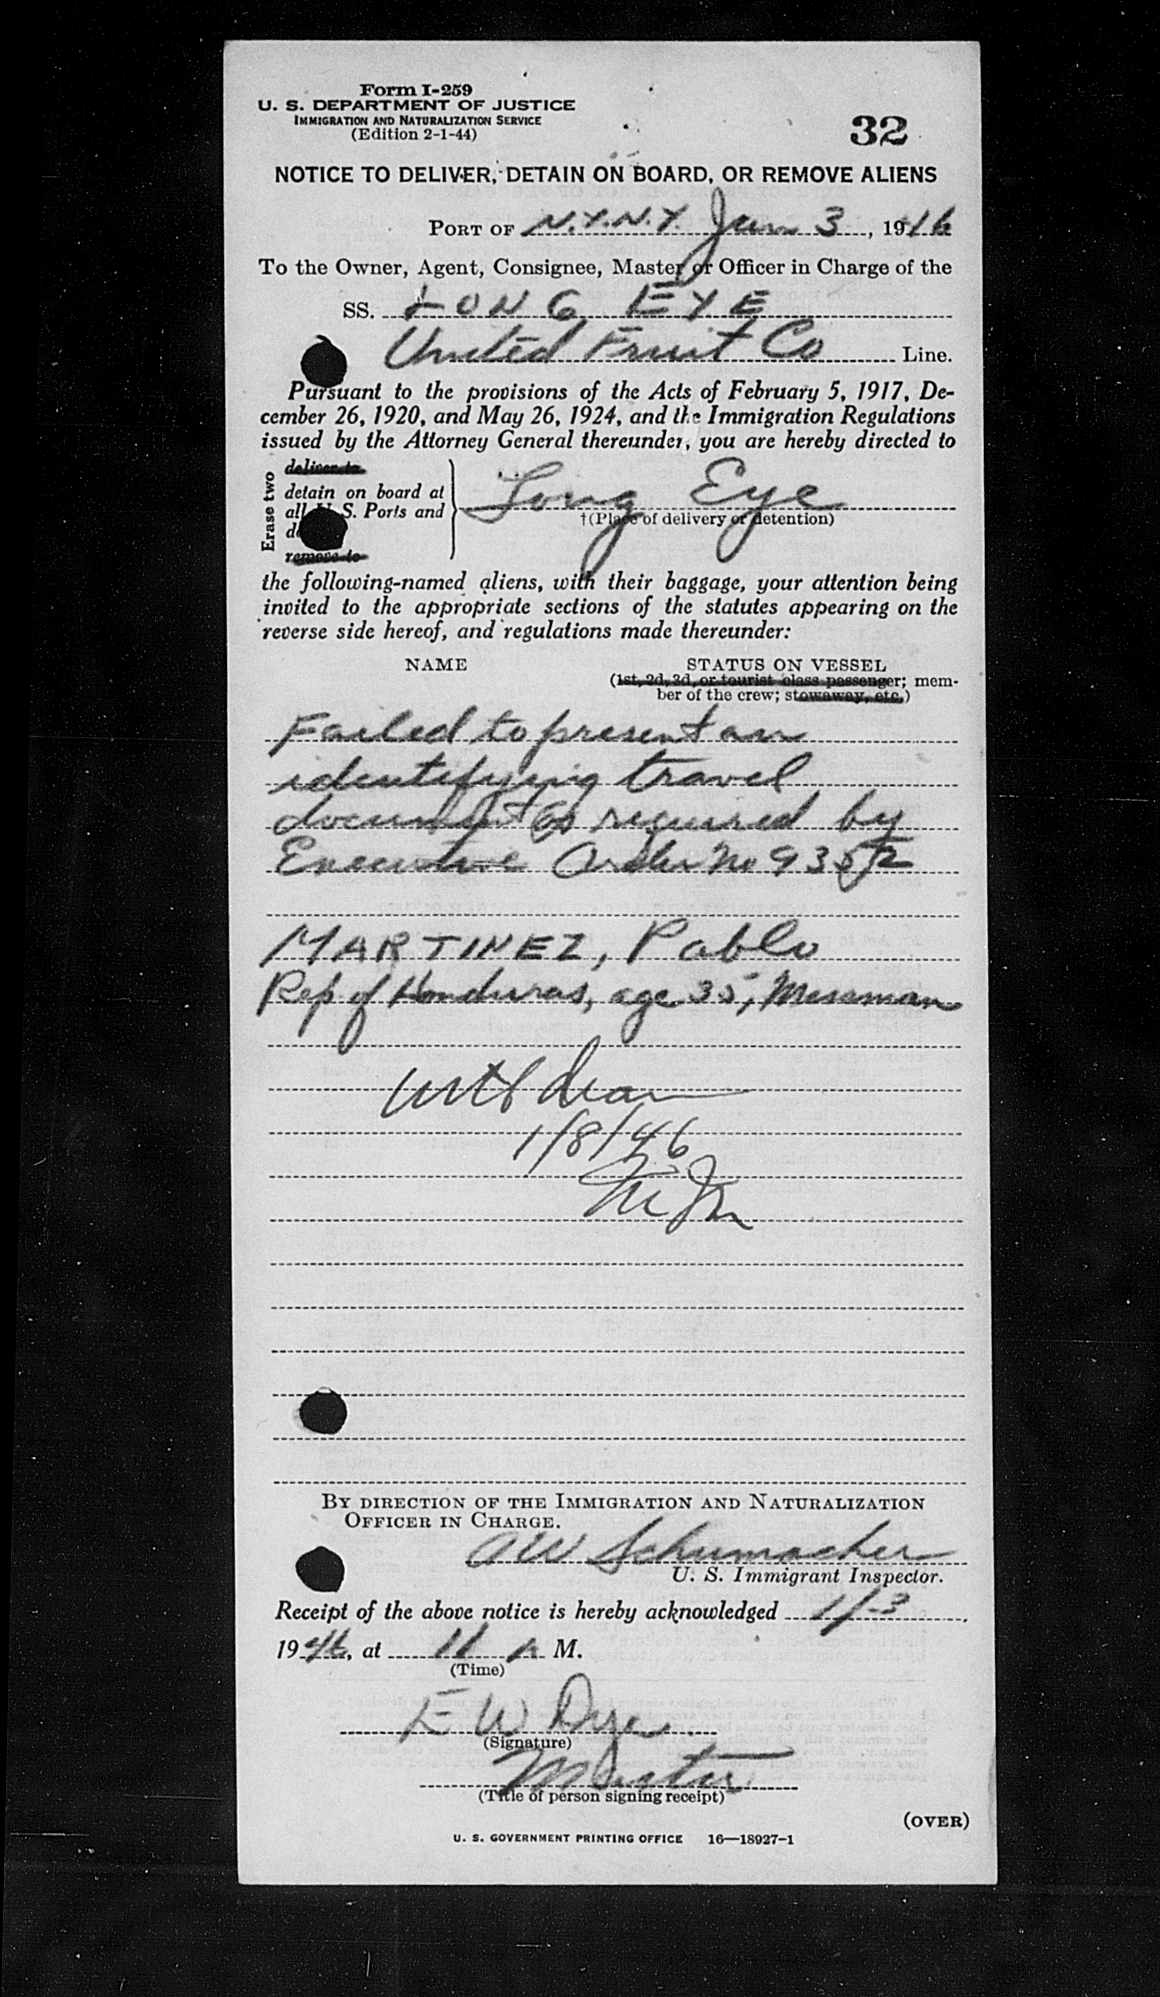 Form I-259
U. S. DEPARTMENT OF JUSTICE
IMMIGRATION AND NATURALIZATION SERVICE
(Edition 2-1-44)
32
NOTICE TO DELIVER, DETAIN ON BOARD, OR REMOVE ALIENS
PORT OF N.Y.N.Y. Jan 3, 1946
To the Owner, Agent, Consignee, Master or Officer in Charge of the
SS. LONG EYE
United Fruit Co Line.
Pursuant to the provisions of the Acts of February 5, 1917, De-
cember 26, 1920, and May 26, 1924, and the Immigration Regulations
issued by the Attorney General thereunder, you are hereby directed to
Erase two
deliver to
detain on board at
all U. S. Ports and
remove to
Long Eye
†(Place of delivery or detention)
the following-named aliens, with their baggage, your attention being
invited to the appropriate sections of the statutes appearing on the
reverse side hereof, and regulations made thereunder:
NAME
STATUS ON VESSEL
(1st, 2d, 3d, or tourist class passenger; mem-
ber of the crew; stowaway, etc.)
Failed to present an
identifying travel
document as required by
Executive Order No 9352
MARTINEZ, Pablo
Rep of Honduras, age 35, Messman
1/8/46
BY DIRECTION OF THE IMMIGRATION AND NATURALIZATION
OFFICER IN CHARGE.
AW Schumacher
U. S. Immigrant Inspector.
Receipt of the above notice is hereby acknowledged 1/3
1946, at 11 A M.
(Time)
E W Dye
(Signature)
Master
(Title of person signing receipt)
(OVER)
U. S. GOVERNMENT PRINTING OFFICE 16—18927-1